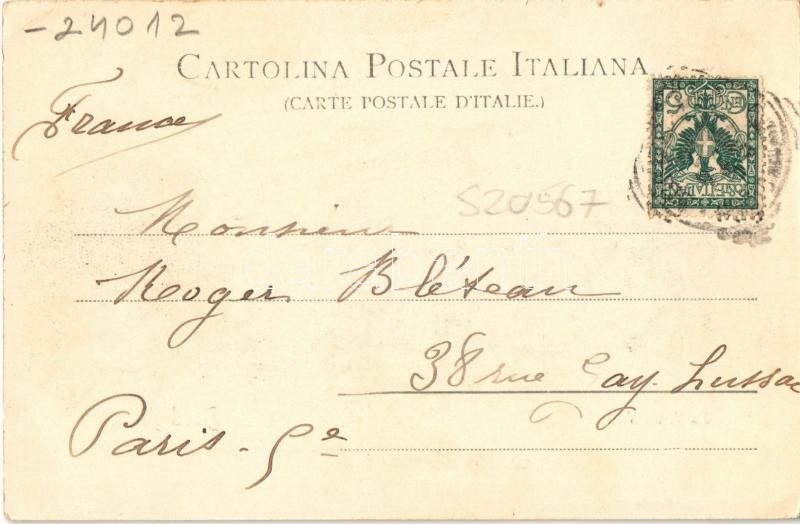 -24012
CARTOLINA POSTALE ITALIANA
(CARTE POSTALE D'ITALIE.)
France
CEN 5
POSTE ITALIANE
S20567
Monsieur
Roger Bléteau
38 rue Gay-Lussac
Paris - 5e